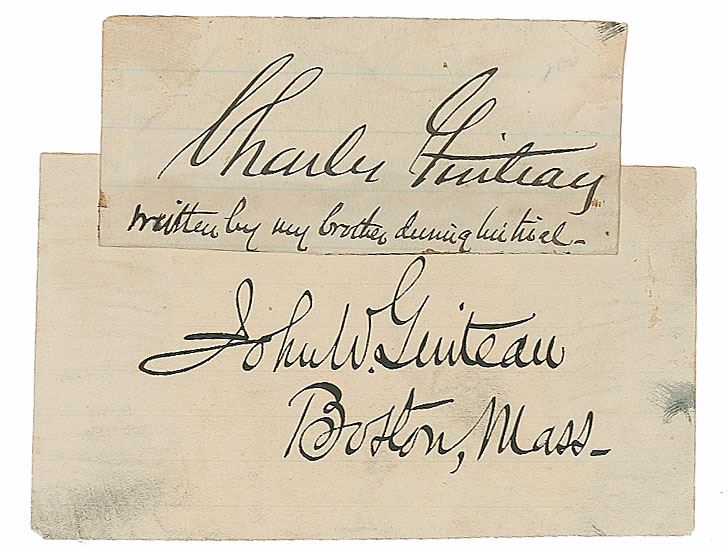 Charles Guiteau
written by my brother during his trial-
John W. Guiteau
Boston, Mass-